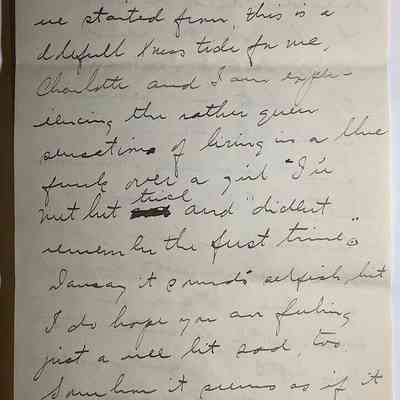 we started from, this is a
dolefull Xmas tide for me,
Charlotte and I am exper-
iencing the rather queer
sensation of living in a blue
funk over a girl "I'd
met but twice and "didn't
remember the first time".
I dare say it sounds selfish, but
I do hope you are feeling
just a wee bit sad, too.
Somehow it seems as if it